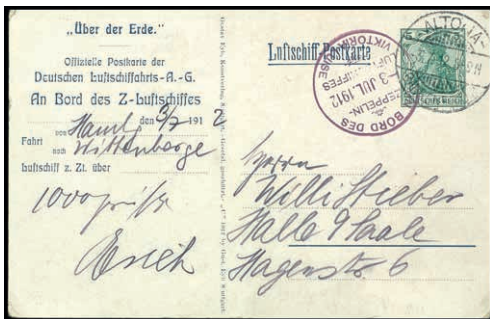 „Über der Erde."
Offizielle Postkarte der
Deutschen Luftschiffahrts-A.-G.
An Bord des Z-Luftschiffes
den 3/7 1912
Fahrt von Hambg
nach Wittenberge
Luftschiff z. Zt. über
1000 Grüße
Erich
Luftschiff-Postkarte
BORD DES
ZEPPELIN-
LUFTSCHIFFES
VIKTORIA
LUISE
-3 JUL. 1912
ALTONA-
DEUTSCHES REICH
Herrn
Willi Stieber
Halle a/Saale
Hagenstr. 6